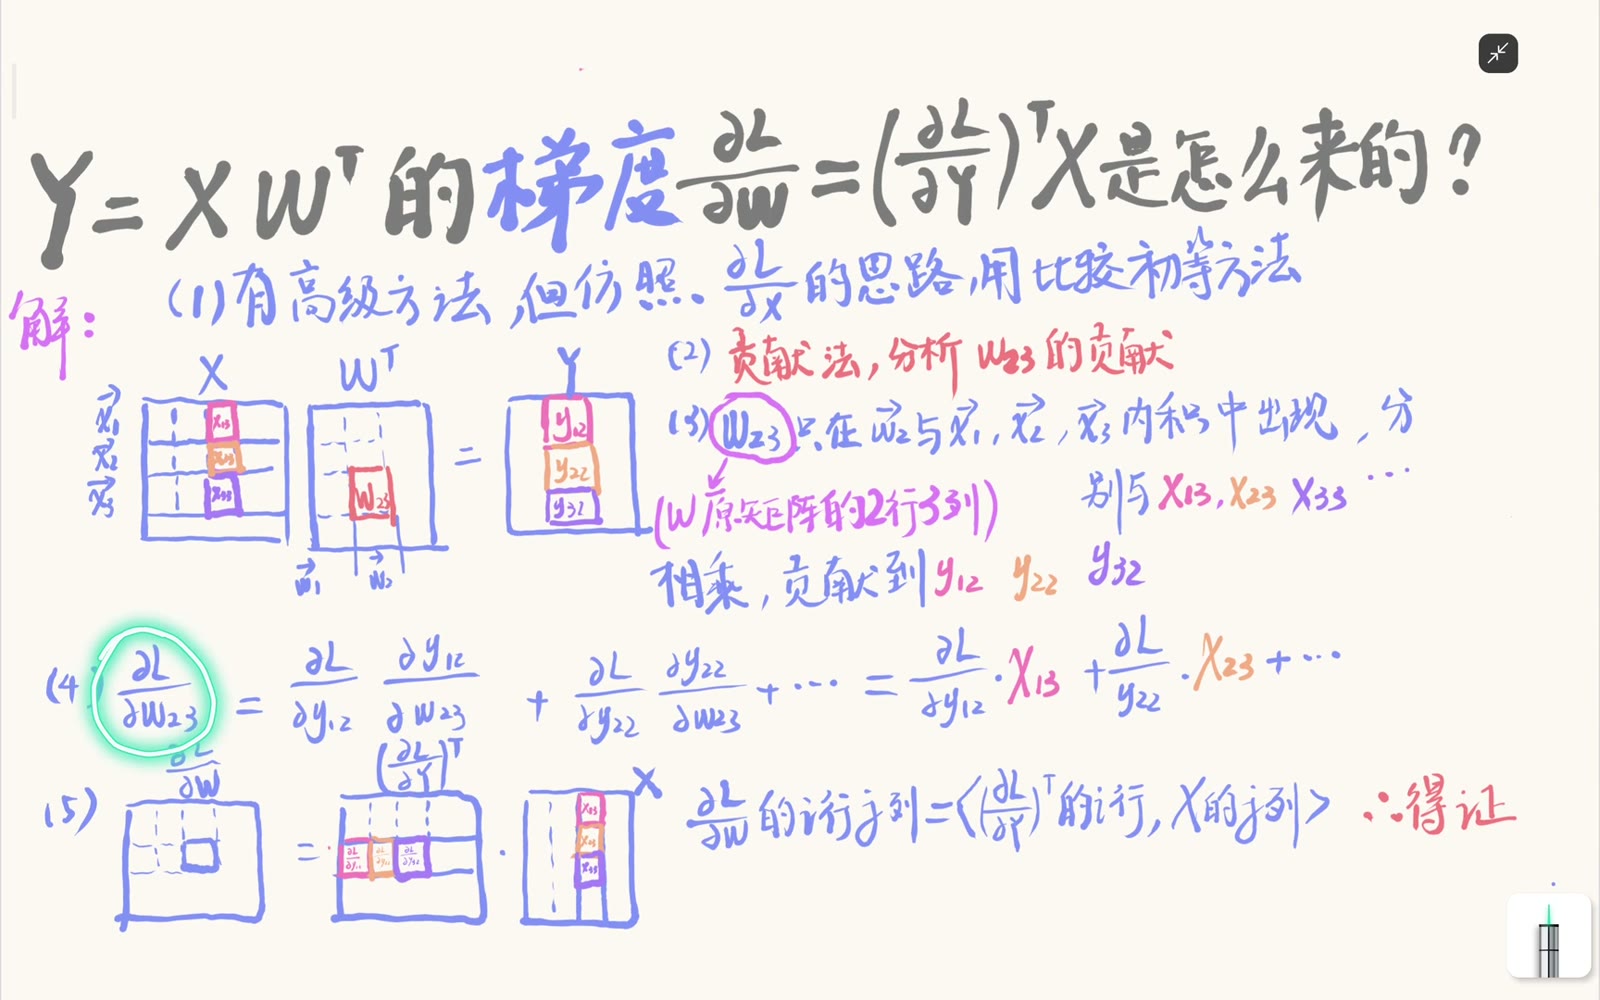 Y = X Wᵀ 的梯度 ∂L/∂W = (∂L/∂Y)ᵀ X 是怎么来的?
解: (1) 有高级方法,但仿照 ∂L/∂X 的思路,用比较初等方法
X Wᵀ Y
(2) 贡献法,分析 W23 的贡献
x⃗1 x⃗2 x⃗3
x13 x23 x33
W23
=
y12 y22 y32
w⃗1 w⃗2
(3) W23 只在 w⃗2 与 x⃗1, x⃗2, x⃗3 内积中出现,分
别与 x13, x23 x33 …
(W 原矩阵的2行3列)
相乘,贡献到 y12 y22 y32
(4) ∂L/∂W23 = ∂L/∂y12 ∂y12/∂W23 + ∂L/∂y22 ∂y22/∂W23 + … = ∂L/∂y12 · x13 + ∂L/y22 · x23 + …
(5) ∂L/∂W = (∂L/∂Y)ᵀ · X
∂L/∂y12 ∂L/∂y22 ∂L/∂y32
x13 x23 x33
∂L/∂W 的 i 行 j 列 = <(∂L/∂Y)ᵀ 的 i 行, X 的 j 列> ∴得证